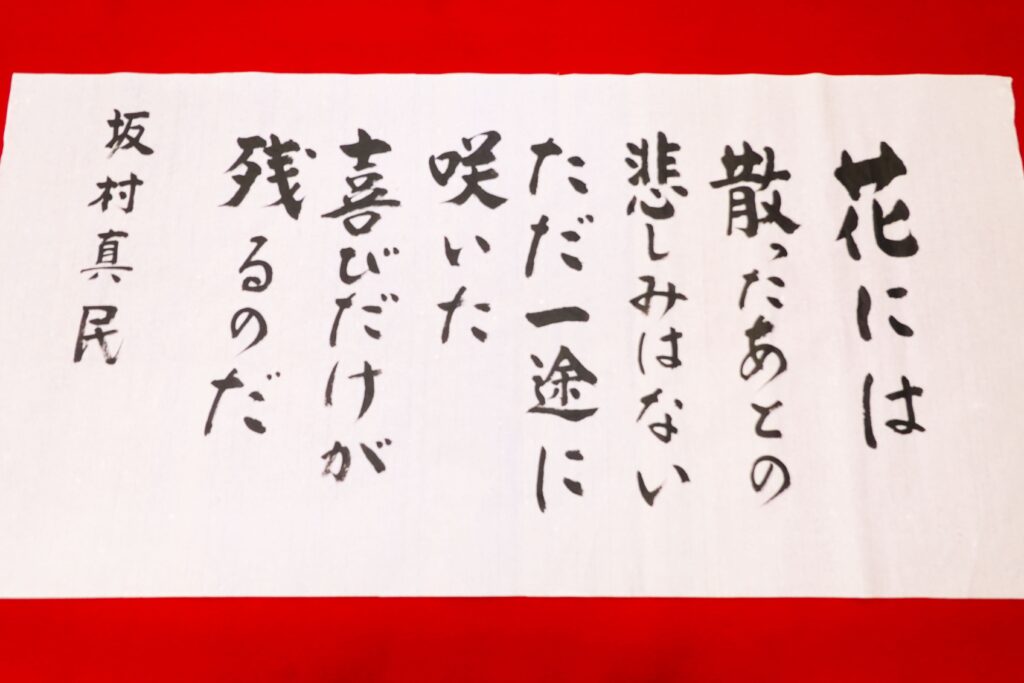 花には
散ったあとの
悲しみはない
ただ一途に
咲いた
喜びだけが
残るのだ
坂村真民